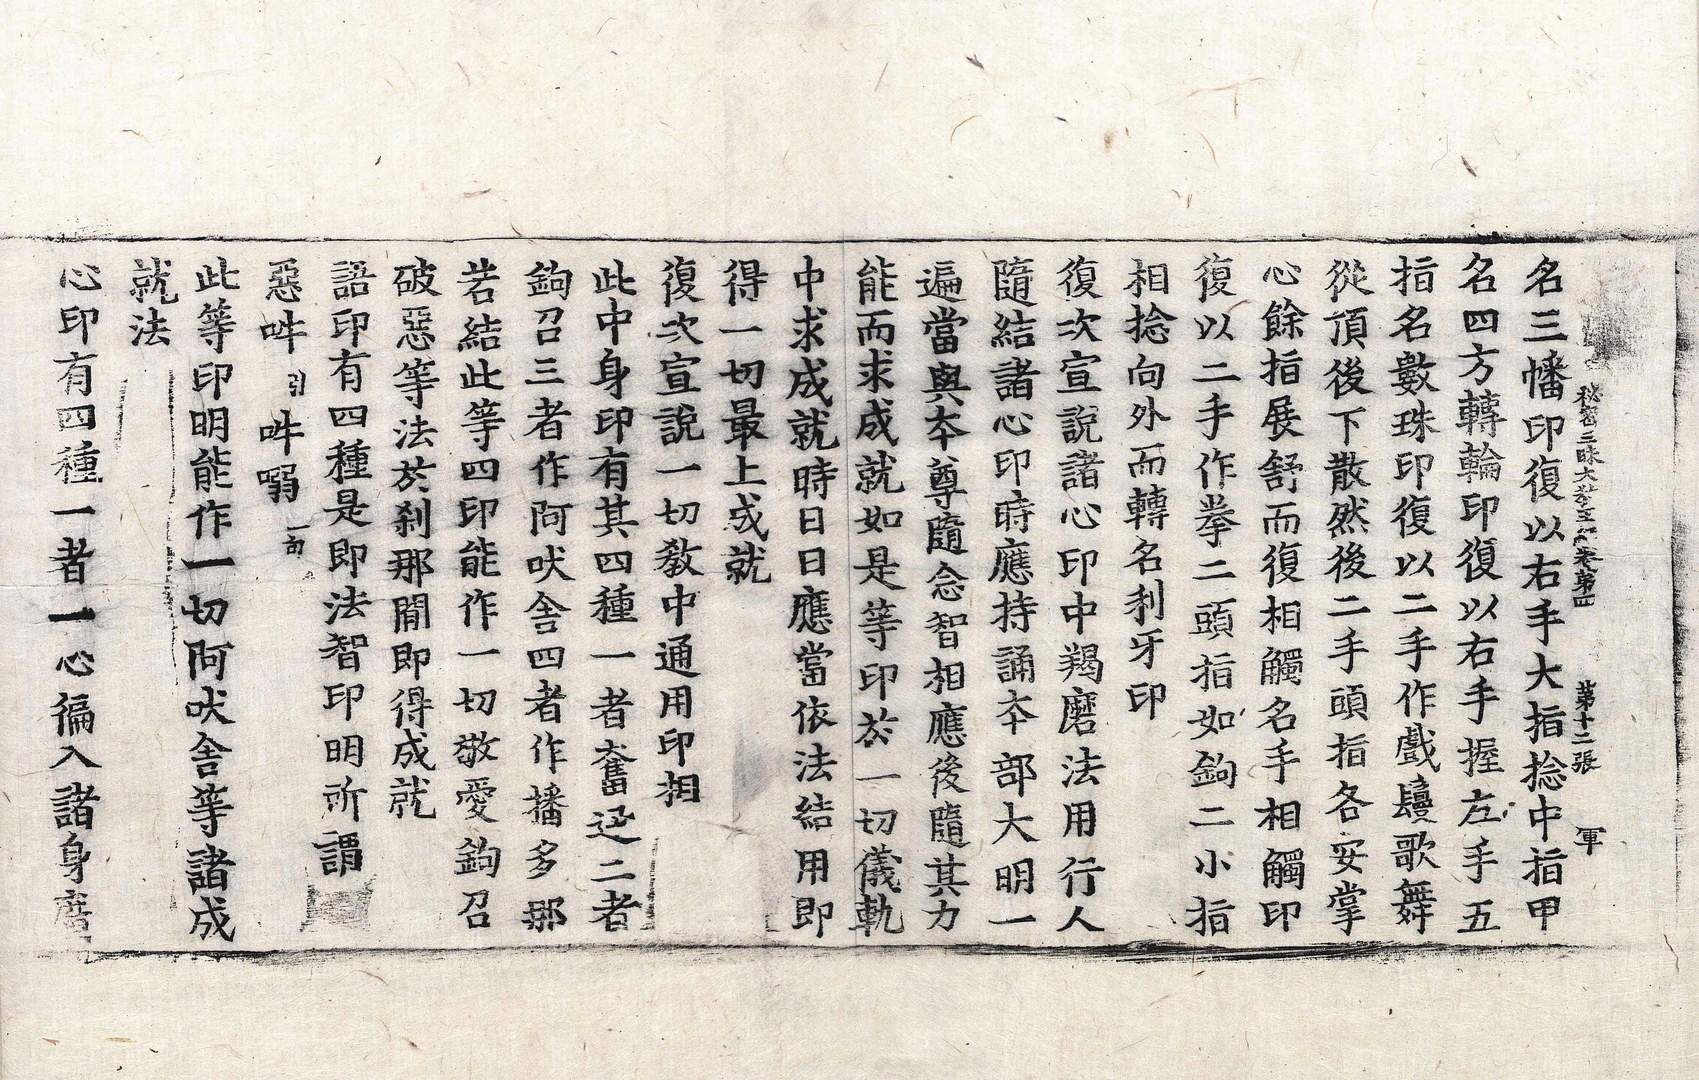 秘密三昧大教王經卷第四 第十二張 軍
名三幡印復以右手大指捻中指甲
名四方轉輪印復以右手握左手五
指名數珠印復以二手作戲鬘歌舞
從頂後下散然後二手頭指各安掌
心餘指展舒而復相觸名手相觸印
復以二手作拳二頭指如鉤二小指
相捻向外而轉名利牙印
復次宣說諸心印中羯磨法用行人
隨結諸心印時應持誦本部大明一
遍當與本尊隨念智相應後隨其力
能而求成就如是等印於一切儀軌
中求成就時日日應當依法結用即
得一切最上成就
復次宣說一切教中通用印相
此中身印有其四種一者奮迅二者
鉤召三者作阿吠舍四者作播多那
若結此等四印能作一切敬愛鉤召
破惡等法於剎那間即得成就
語印有四種是即法智印明所謂
惡吽引吽嗍一句
此等印明能作一切阿吠舍等諸成
就法
心印有四種一者一心徧入諸身磨